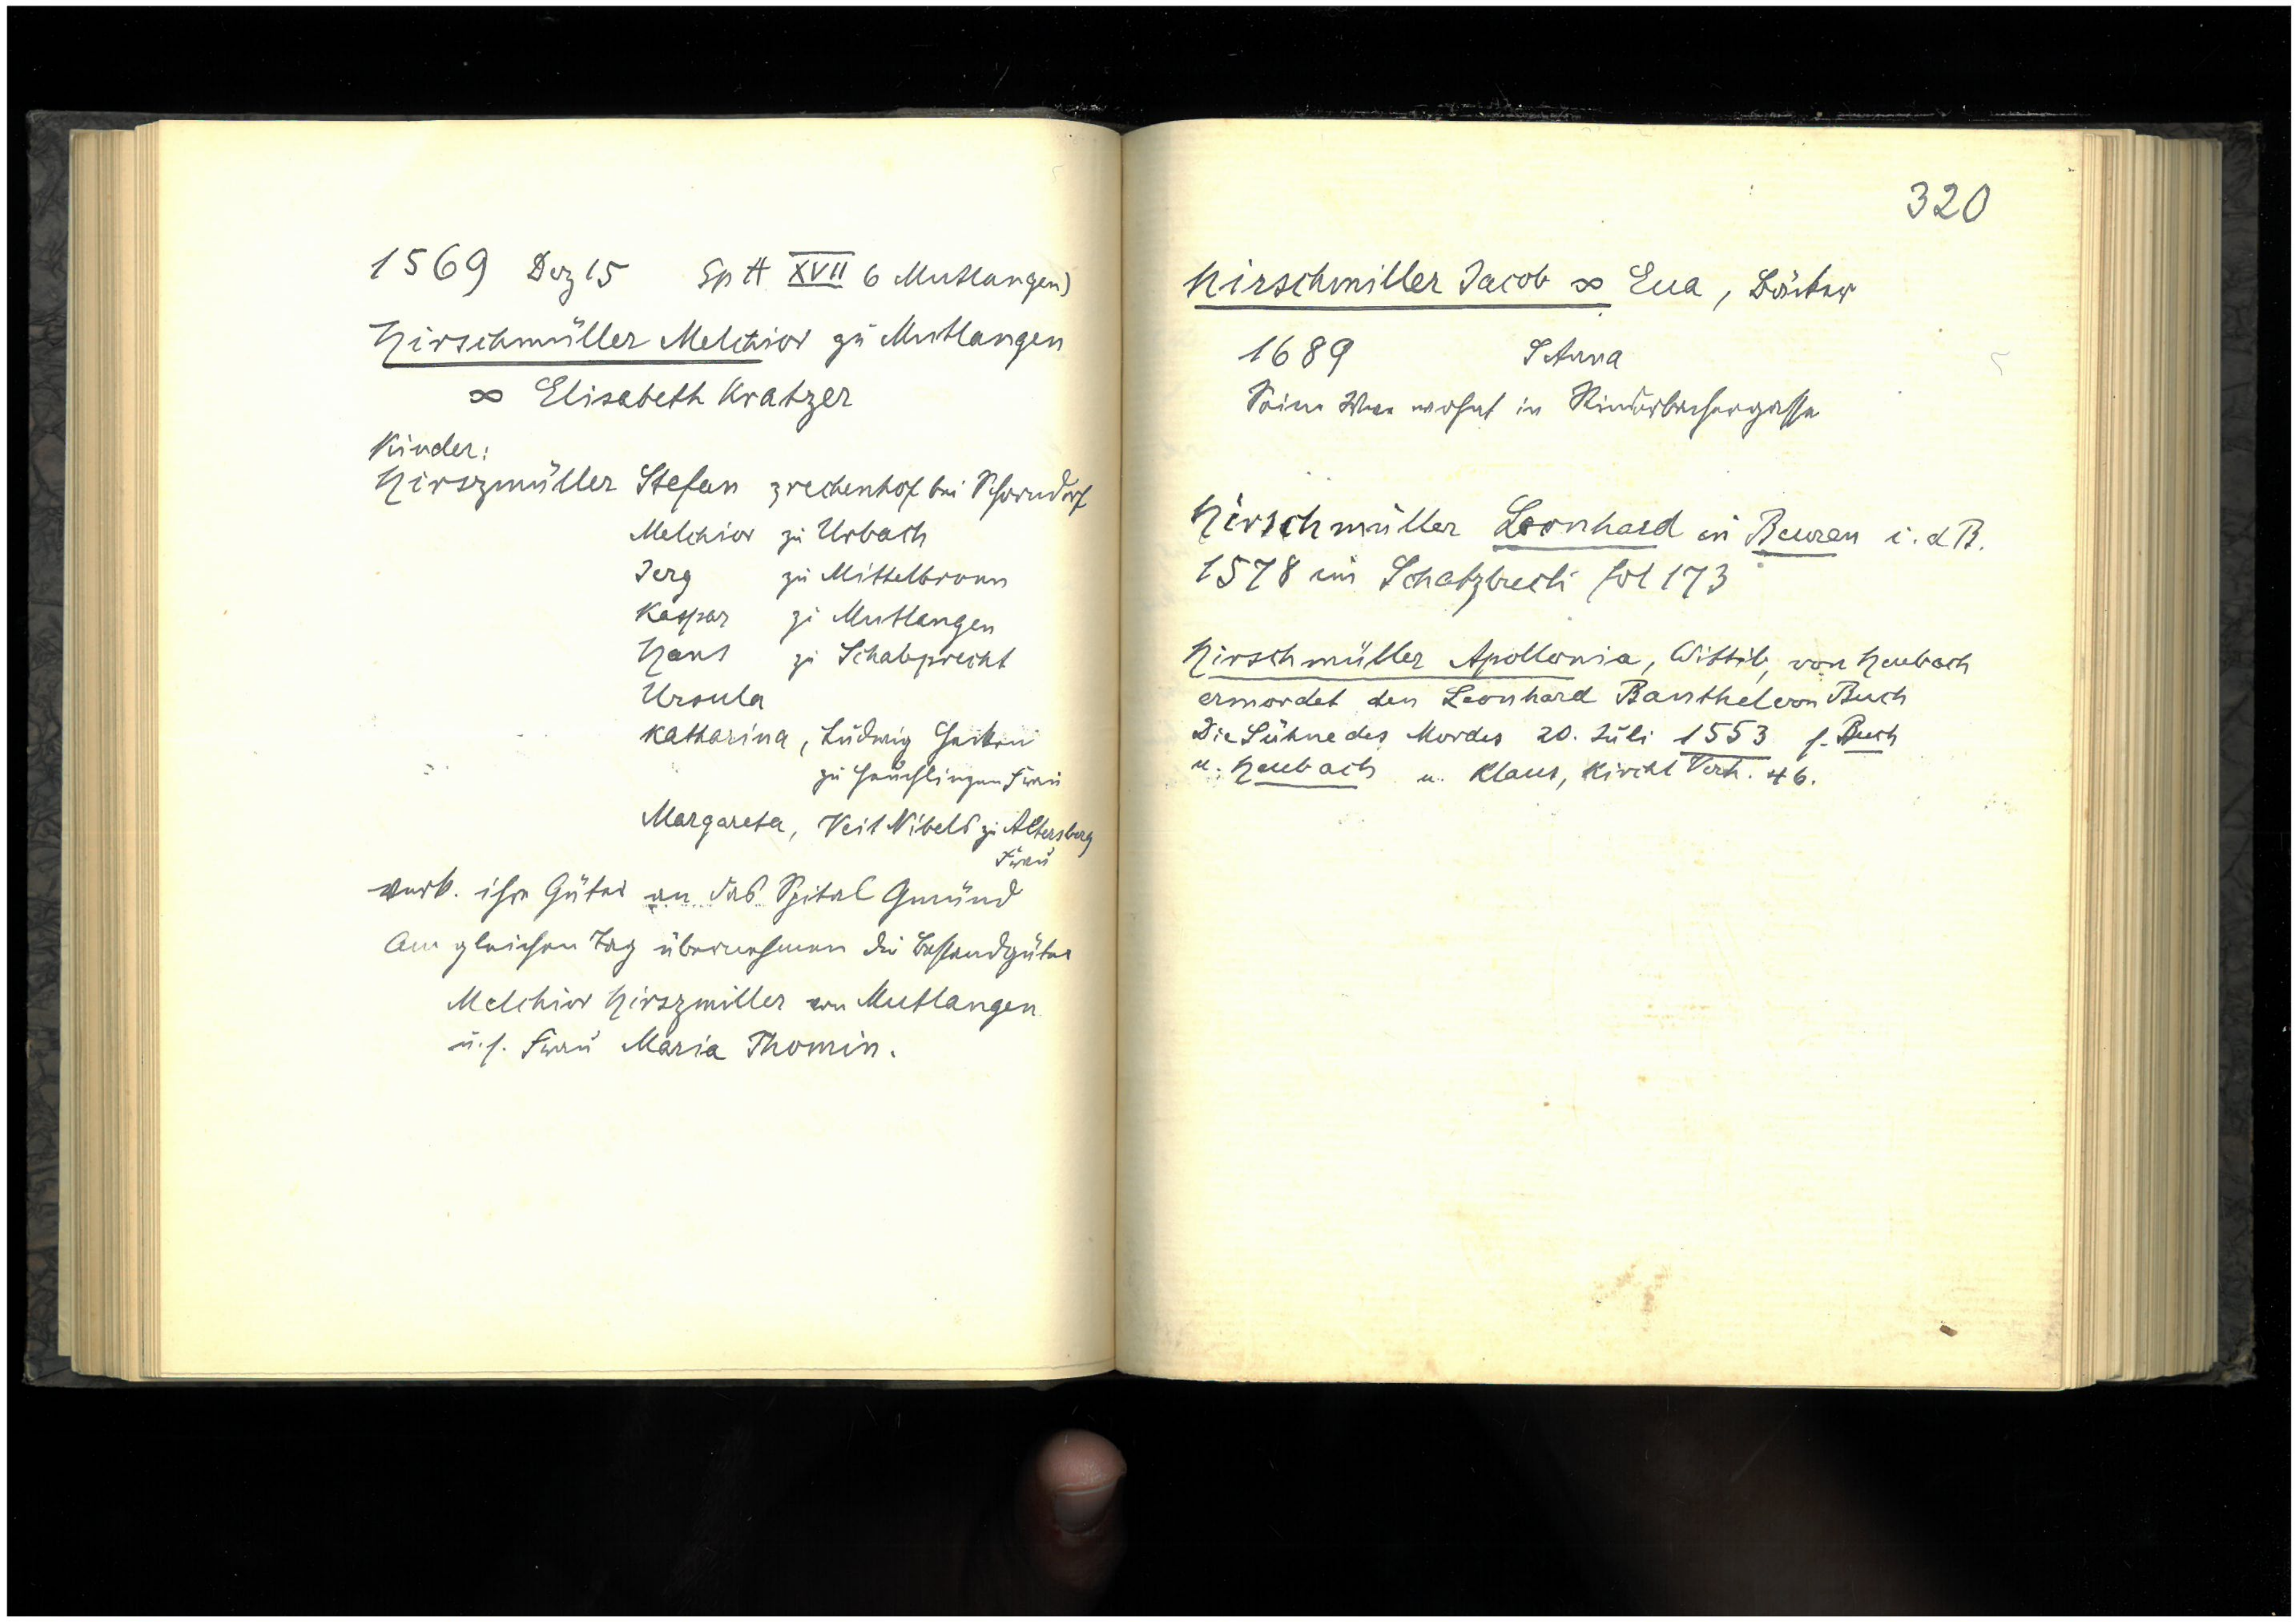 1569 Dez 15 Sp A XVII 6 Mutlangen)
Hirschmüller Melchior zu Mutlangen
∞ Elisabeth Kratzer
Kinder:
Hirszmüller Stefan z rechenhof bei Schorndorf
Melchior zu Urbach
Jerg zu Mittelbronn
Kaspar zu Mutlangen
Hans zu Schabprecht
Ursula
Katharina, Ludwig
zu Heuchlingen Frau
Margareta, Veit Nibels zu Altersberg
Frau
verk. ihre Güter an das Spital Gmünd
Am gleichen Tag übernehmen die Bestandgüter
Melchior Hirszmiller von Mutlangen
u. s. Frau Maria Thomin.
320
Hirschmiller Jacob ∞ Eua, Bäcker
1689 S Anna
Seine Wwe wohnt in Rinderbachergasse
Hirschmüller Leonhard in Beuren i. d B.
1578 im Schatzbuch fol 173
Hirschmüller Apollonia, Wittib, von Heubach
ermordet den Leonhard Banthel von Buch
Die Sühne des Mordes 20. Juli 1553 s. Buch
u. Heubach u. Klaus, Kirchl Verh. 46.